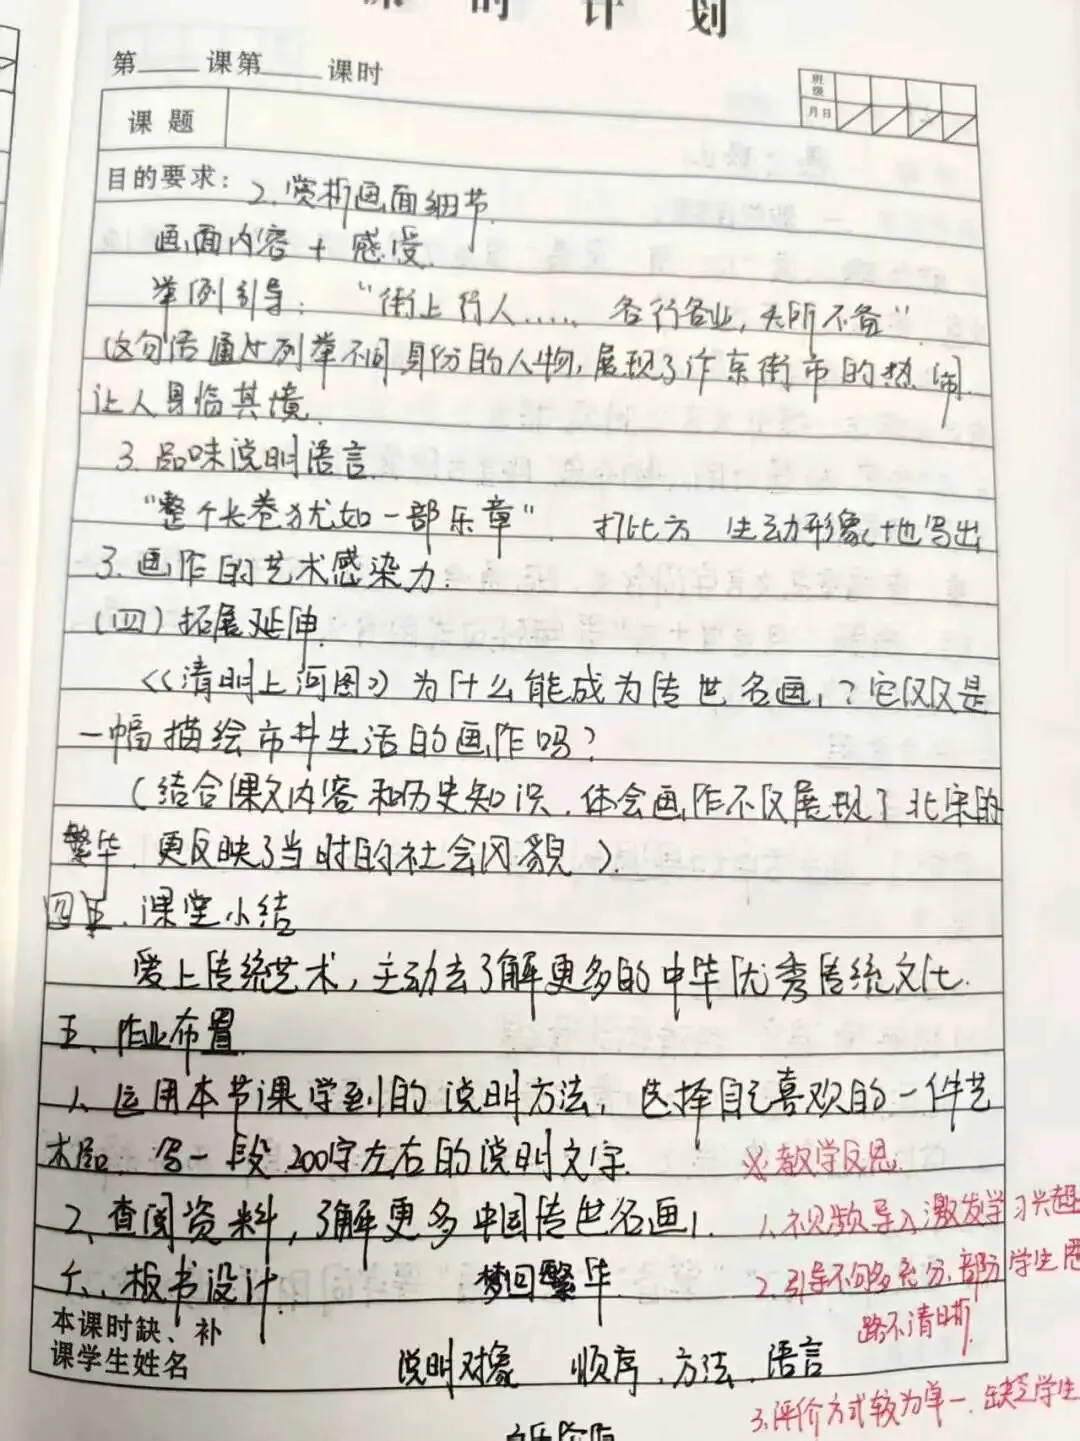 课时计划
第____课第____课时
班级
月日
课题
目的要求：2.赏析画面细节.
画面内容 + 感受.
举例引导："街上行人...... 各行各业,无所不备"
这句话通过列举不同身份的人物,展现了汴京街市的热闹.
让人身临其境.
3.品味说明语言.
"整个长卷犹如一部乐章". 打比方 生动形象地写出
3.画作的艺术感染力.
(四)拓展延伸.
《清明上河图》为什么能成为传世名画,?它仅仅是
一幅描绘市井生活的画作吗?
(结合课文内容和历史知识.体会画作不仅展现了北宋的
繁华.更反映了当时的社会风貌).
四五.课堂小结
爱上传统艺术,主动去了解更多的中华优秀传统文化.
五、作业布置
1、运用本节课学到的说明方法,选择自己喜欢的一件艺
术品.写一段200字左右的说明文字.
※教学反思.
2、查阅资料,了解更多中国传世名画.
1.视频导入激发学习兴趣
六、板书设计. 梦回繁华
2.引导不够充分.部分学生思
路不清晰.
本课时缺、补
课学生姓名
说明对象 顺序.方法.语言
3.评价方式较为单一.缺乏学生